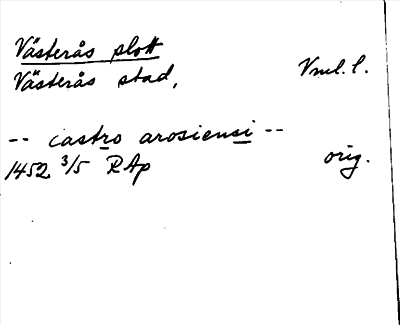 Västerås slott
Västerås stad, Vml. l.
-- castro arosiensi --
1452 3/5 RAp orig.